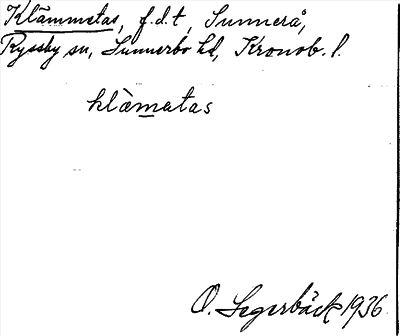 Klämmetas, f.d.t, Sunnerå,
Ryssby sn, Sunnerbo hd, Kronob. l.
klämetas
O. Segerbäck 1936